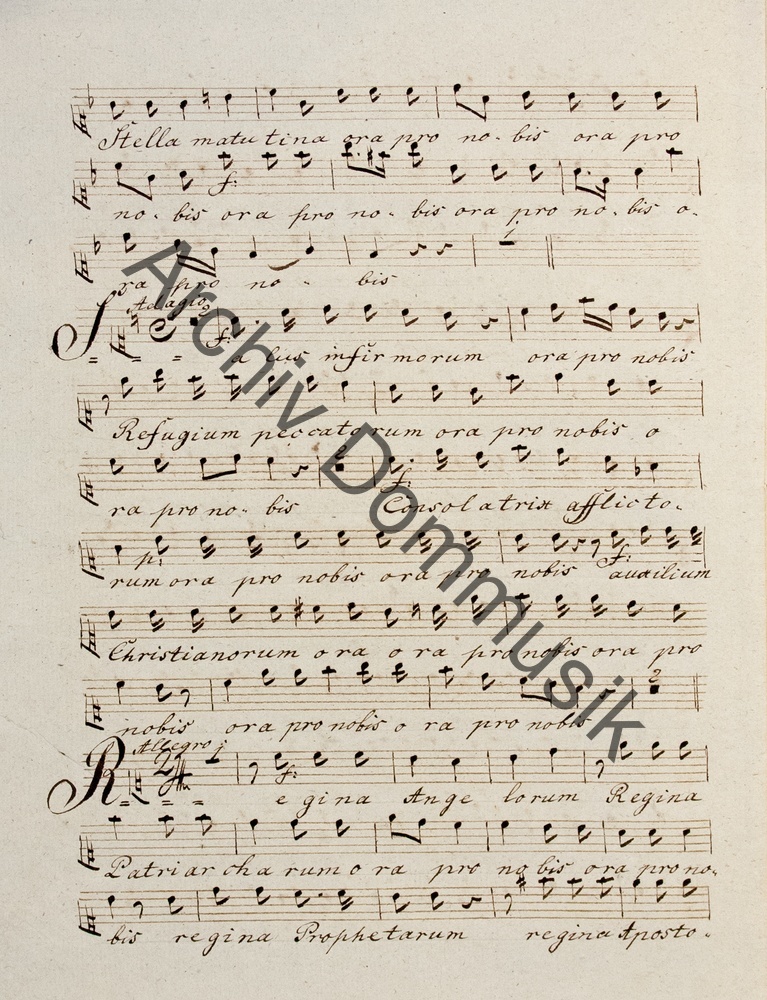 Stella matutina ora pro no - bis ora pro
no - bis ora pro no - bis ora pro no - bis o -
f:
ra pro no - bis
Adagio
2
S = = = alus infirmorum ora pro nobis
f:
Refugium peccatorum ora pro nobis o
ra pro no - bis Consolatrix afflicto -
2
f:
rum ora pro nobis ora pro nobis auxilium
p:
f:
Christianorum ora ora pro nobis ora pro
nobis ora pro nobis o ra pro nobis
2
Allegro
R = = = egina Ange lorum Regina
f:
Patriar cha rum o ra pro nobis ora pro no -
bis regina Prophetarum regina Aposto -
Archiv Dommusik